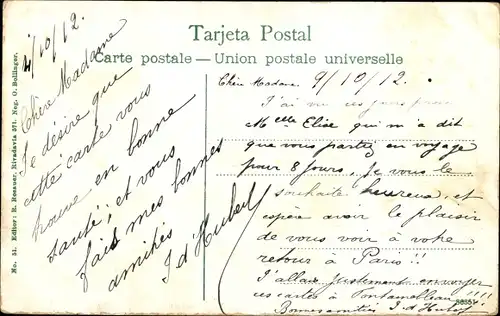 Tarjeta Postal
Carte postale — Union postale universelle
No. 51. Editor: R. Rosauer, Rivadavia 571. Neg. G. Bollinger.
4/10/12.
Chère Madame
Je désire que
cette carte vous
trouve en bonne
santé; et vous
fais mes bonnes
amitiés
J d'Hubert
Chère Madame. 9/10/12.
J'ai vu ces jours
Melle Elise qui m'a dit
que vous partez en voyage
pour 8 jours, je vous le
souhaite heureux, et
espère avoir le plaisir
de vous voir à votre
retour à Paris!!
J'allais justement envoyer
ces cartes à Fontainebleau!!!!
Bonnes amitiés J d'Hubert